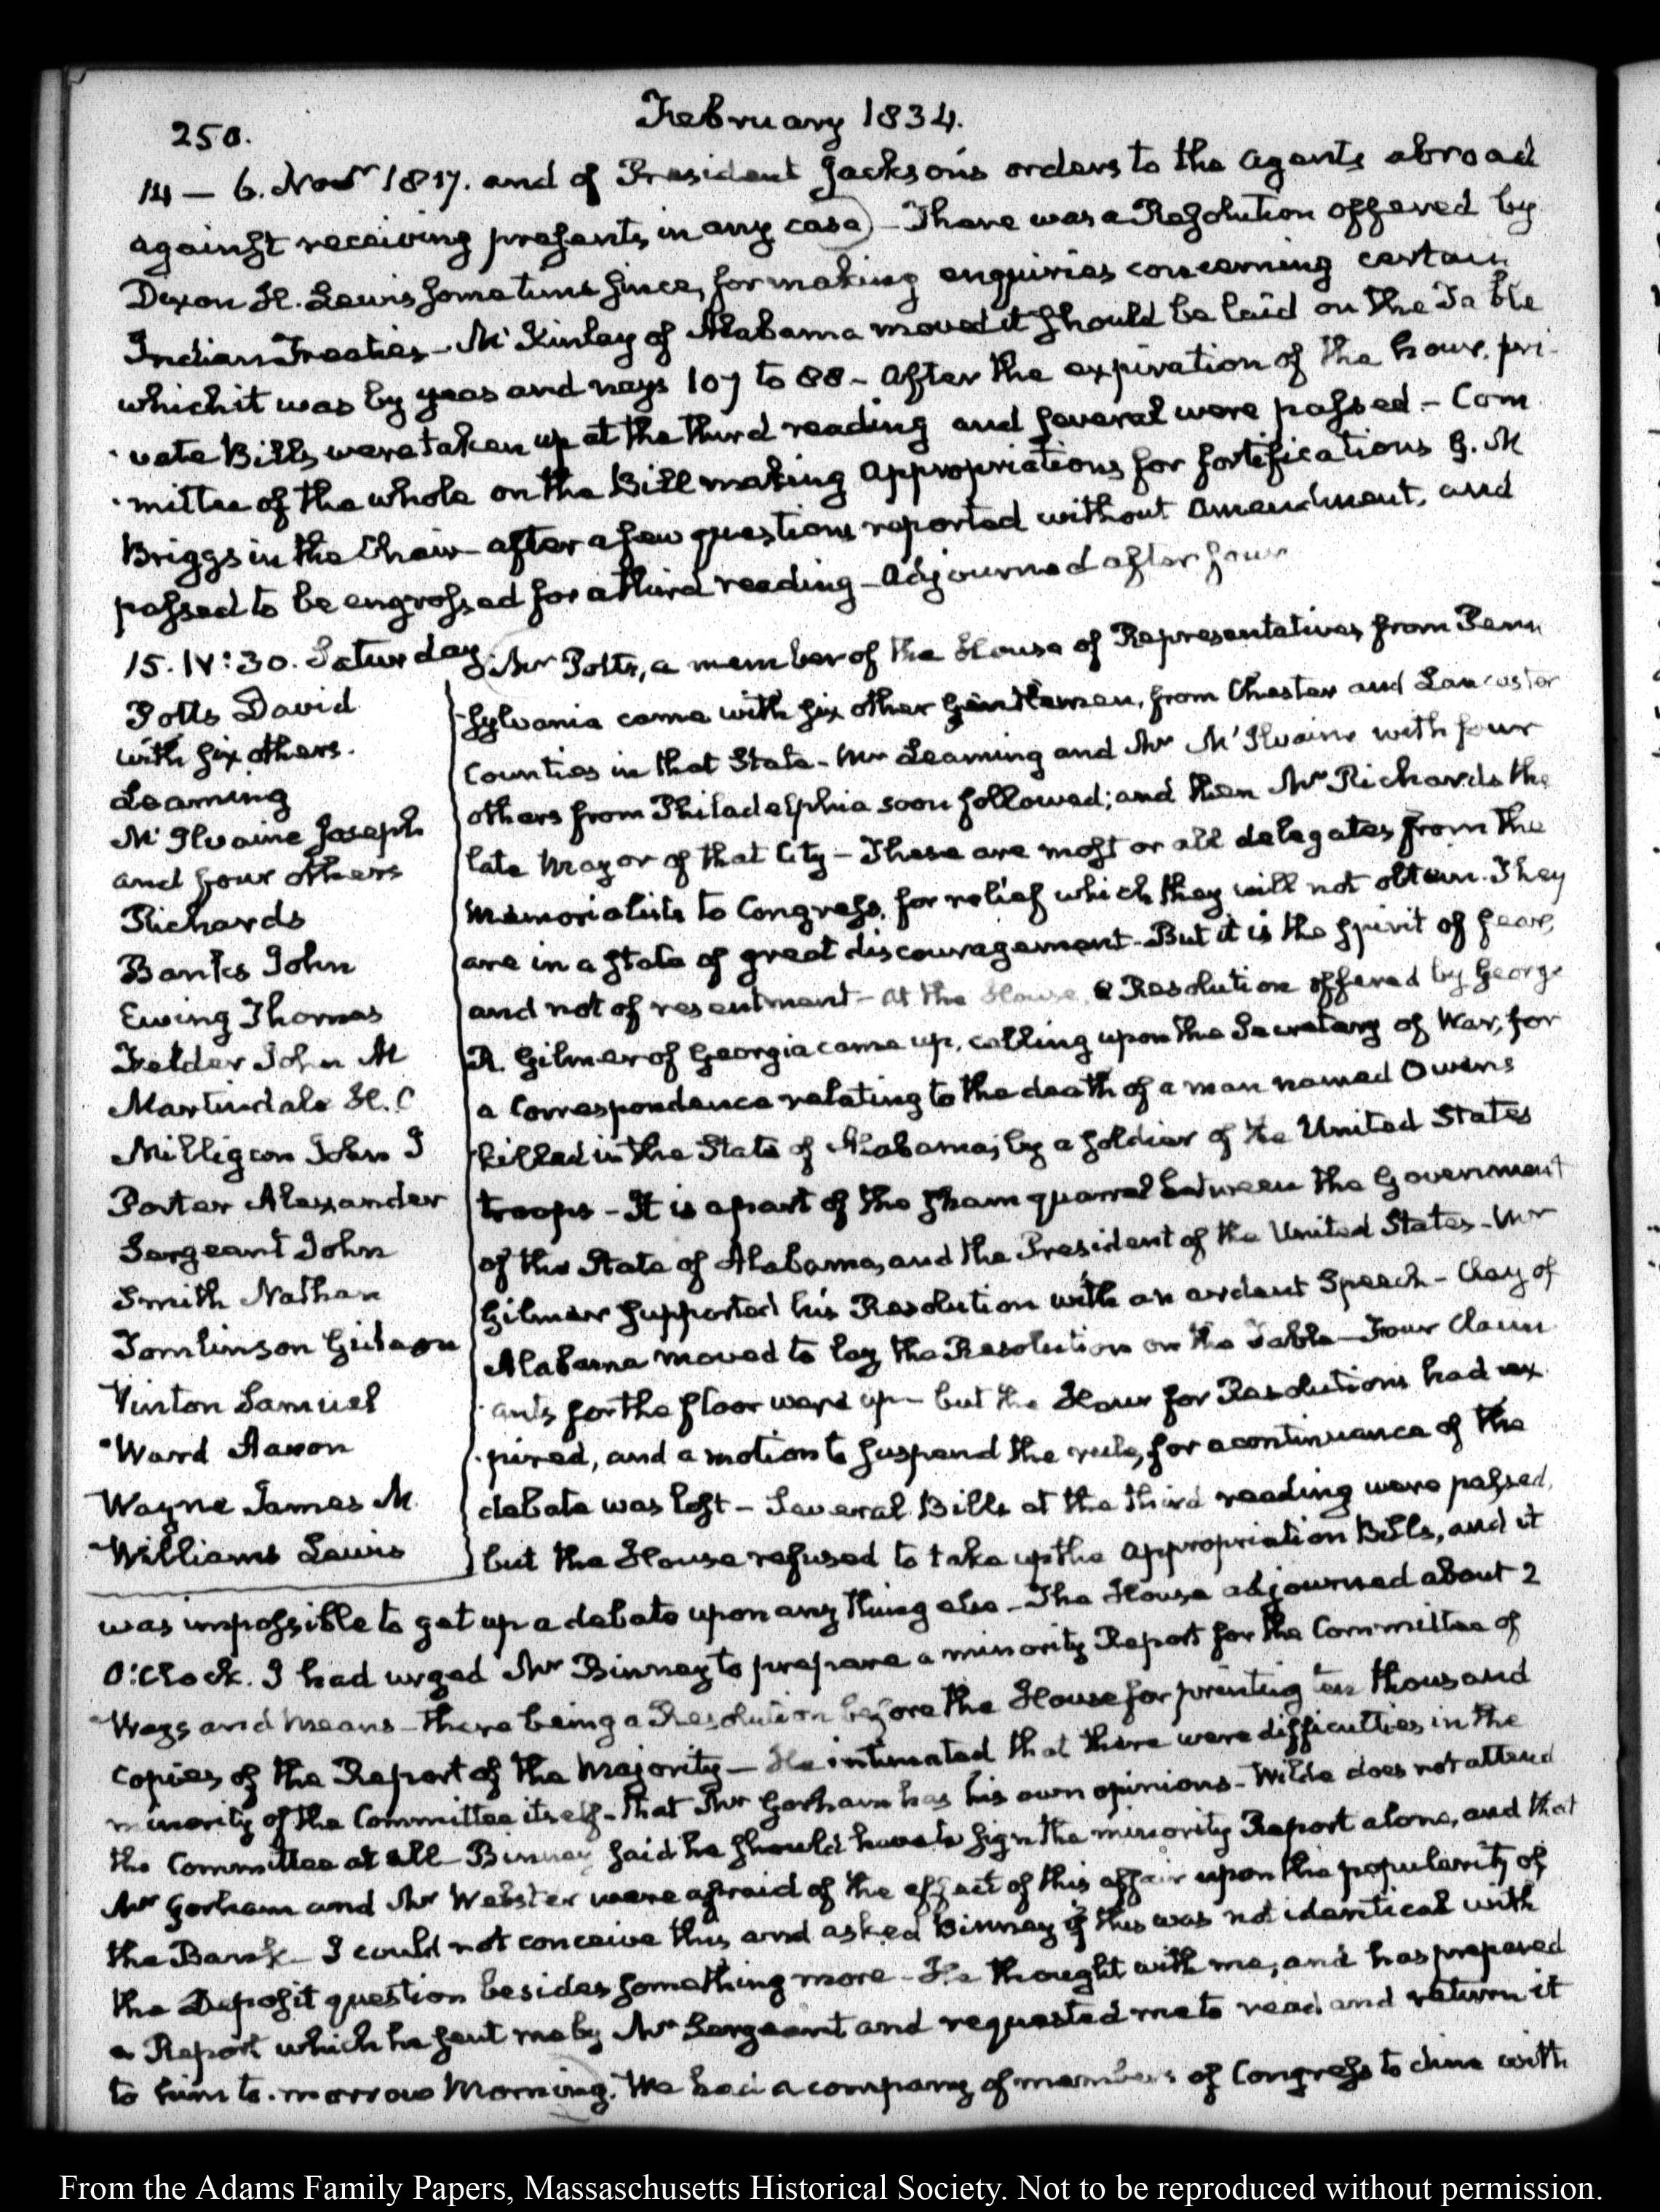 250.
February 1834.
14 — 6. Novr 1817. and of President Jackson's orders to the agents abroad
against receiving presents, in any case) – There was a Resolution offered by
Dixon H. Lewis sometime since, for making enquiries concerning certain
Indian Treaties – McKinley of Alabama moved it should be laid on the Table
which it was by yeas and nays 107 to 88 – After the expiration of the hour, pri-
vate Bills were taken up at the third reading and several were passed – Com
mittee of the whole on the Bill making appropriations for fortifications G. N
Briggs in the Chair – after a few questions reported without amendment, and
passed to be engrossed for a third reading – Adjourned after four
15. IV:30. Saturday. Mr Potts, a member of the House of Representatives from Penn
Potts David
with six others.
Leaming
McIlvaine Joseph
and four others
Richards
Banks John
Ewing Thomas
Felder John M
Martindale H. C
Milligan John J
Porter Alexander
Sergeant John
Smith Nathan
Tomlinson Gideon
Vinton Samuel
Ward Aaron
Wayne James M
Williams Lewis
sylvania came with six other Gentlemen, from Chester and Lancaster
Counties in that State – Mr Leaming and Mr McIlvaine with four
others from Philadelphia soon followed; and then Mr Richards the
late Mayor of that City – These are most or all delegates from the
memorialists to Congress, for relief which they will not obtain. They
are in a state of great discouragement – But it is the spirit of fear,
and not of resentment – At the House, a Resolution offered by George
R. Gilmer of Georgia came up, calling upon the Secretary of War, for
a Correspondence relating to the death of a man named Owens
killed in the State of Alabama, by a soldier of the United States
troops – It is a part of the sham quarrel between the Government
of the State of Alabama, and the President of the United States – Mr
Gilmer supported his Resolution with an ardent Speech – Clay of
Alabama moved to lay the Resolution on the Table – Four Claim
ants for the floor were up – but the Hour for Resolutions had ex
pired, and a motion to suspend the rule, for a continuance of the
debate was lost – Several Bills at the third reading were passed,
but the House refused to take up the appropriation Bills, and it
was impossible to get up a debate upon any thing else – The House adjourned about 2
O'Clock. I had urged Mr Binney to prepare a minority Report for the Committee of
Ways and Means – there being a Resolution before the House for printing ten thousand
copies of the Report of the Majority – He intimated that there were difficulties in the
minority of the Committee itself – That Mr Gorham has his own opinions – Wilde does not attend
the Committee at all – Binney said he should have to sign the minority Report alone, and that
Mr Gorham and Mr Webster were afraid of the effect of this affair upon the popularity of
the Bank – I could not conceive this and asked Binney if this was not identical with
the Deposit question besides something more – He thought with me, and has prepared
a Report which he sent me by Mr Sergeant and requested me to read and return it
to him to-morrow Morning. We had a company of members of Congress to dine with
From the Adams Family Papers, Massachusetts Historical Society. Not to be reproduced without permission.